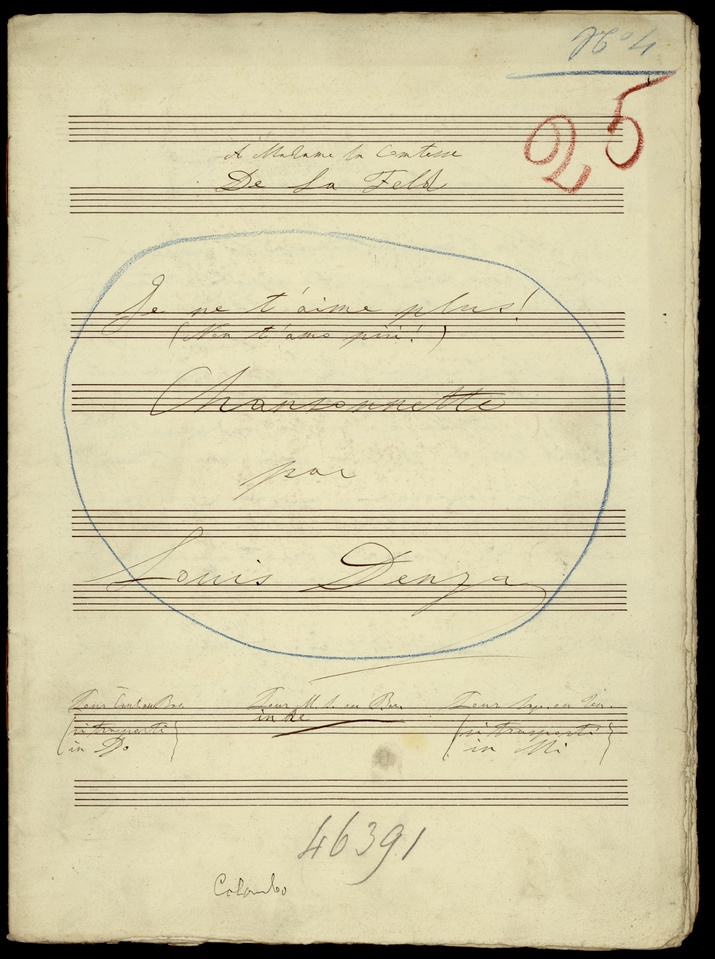 No 4
25
A Madame la Comtesse
De la Feld
Je ne t'aime plus!
(Non t'amo più!)
Chansonnette
par
Louis Denza
Pour Cont. ou Bas. Pour M. S. ou Bar. Pour Sop. ou Ten.
(si trasporti in Re (si trasporti
in Do) in Mi)
46391
Colombo